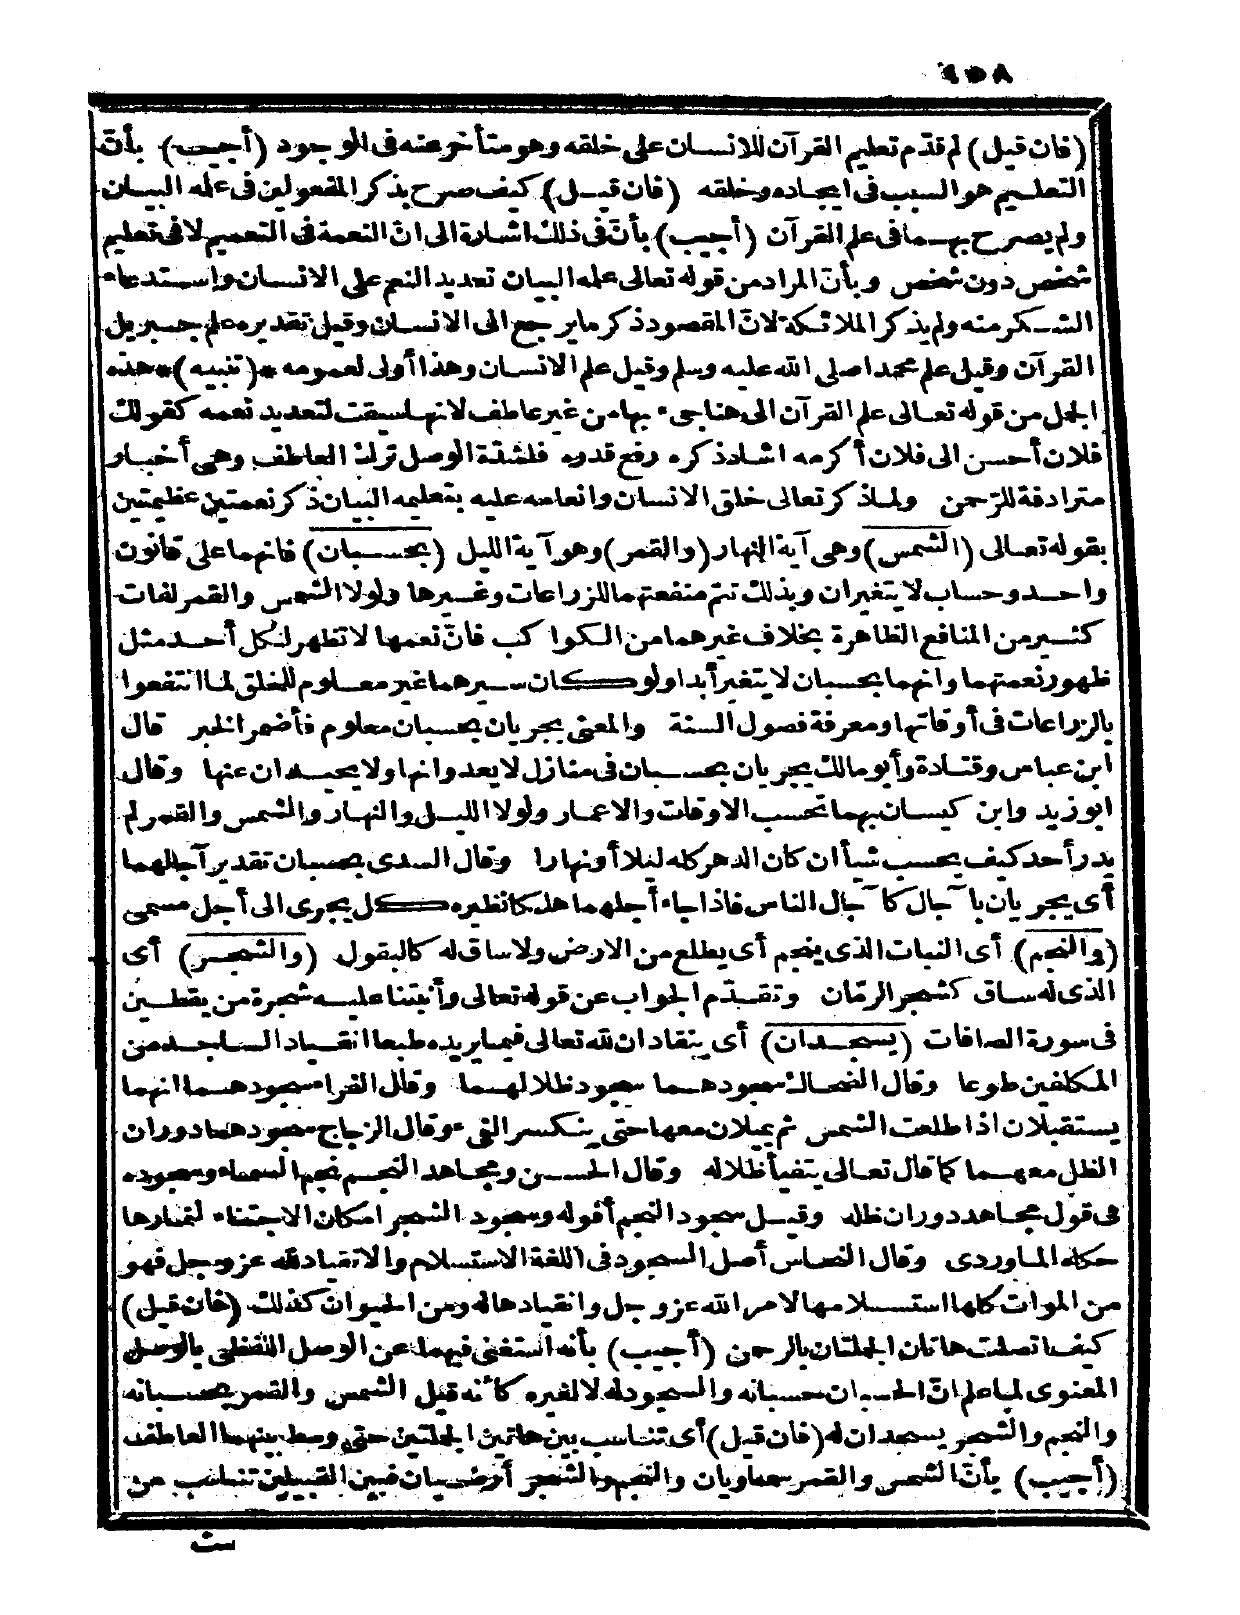 ١٥٨
(فان قيل) لم قدّم تعليم القرآن للانسان على خلقه وهو متأخر عنه فى الوجود (أجيب) بأنّ
التعليم هو السبب فى ايجاده وخلقه (فان قيل) كيف صرح بذكر المفعولين فى علمه البيان
ولم يصرح بهما فى علم القرآن (أجيب) بأنّ فى ذلك اشارة الى انّ النعمة فى التعميم لا فى تعليم
شخص دون شخص وبأنّ المراد من قوله تعالى علمه البيان تعديد النعم على الانسان واستدعاء
الشكر منه ولم يذكر الملائكة لانّ المقصود ذكر ما يرجع الى الانسان وقيل تقديره علم جبريل
القرآن وقيل علم محمدا صلى الله عليه وسلم وقيل علم الانسان وهذا أولى لعمومه *(تنبيه)* هذه
الجمل من قوله تعالى علم القرآن الى هنا جىء بها من غير عاطف لانها سيقت لتعديد نعمه كقولك
فلان أحسن الى فلان أكرمه اشاد ذكره رفع قدره فلشدّة الوصل ترك العاطف وهى أخبار
مترادفة للرّحمن ولما ذكر تعالى خلق الانسان وانعامه عليه بتعليمه البيان ذكر نعمتين عظيمتين
بقوله تعالى (الشمس) وهى آية النهار (والقمر) وهو آية الليل (بحسبان) فانهما على قانون
واحد وحساب لا يتغيران وبذلك تتمّ منفعتهما للزراعات وغيرها ولولا الشمس والقمر لفات
كثير من المنافع الظاهرة بخلاف غيرهما من الكواكب فانّ نعمها لا تظهر لكل أحد مثل
ظهور نعمتهما وانهما بحسبان لا يتغير أبدا ولو كان سيرهما غير معلوم للخلق لما انتفعوا
بالزراعات فى أوقاتها ومعرفة فصول السنة والمعنى يجريان بحسبان معلوم فأضمر الخبر قال
ابن عباس وقتادة وأبو مالك يجريان بحسبان فى منازل لا يعدوانها ولا يحيدان عنها وقال
ابو زيد وابن كيسان بهما تحسب الاوقات والاعمار ولولا الليل والنهار والشمس والقمر لم
يدر أحد كيف يحسب شيأ ان كان الدهر كله ليلا أو نهارا وقال السدى بحسبان تقدير آجالهما
أى يجريان بآجال كآجال الناس فاذا جاء أجلهما هلكا نظيره كل يجرى الى أجل مسمى
(والنجم) أى النبات الذى ينجم أى يطلع من الارض ولا ساق له كالبقول (والشجر) أى
الذى له ساق كشجر الرمّان وتقدّم الجواب عن قوله تعالى وأنبتنا عليه شجرة من يقطين
فى سورة الصافات (يسجدان) أى ينقادان لله تعالى فيما يريده طبعا انقياد الساجد من
المكلفين طوعا وقال الضحاك سجودهما سجود ظلالهما وقال الفراء سجودهما انهما
يستقبلان اذا طلعت الشمس ثم يميلان معها حتى ينكسر الفىء وقال الزجاج سجودهما دوران
الظل معهما كما قال تعالى يتفيأ ظلاله وقال الحسن ومجاهد النجم نجم السماء وسجوده
فى قول مجاهد دوران ظله وقيل سجود النجم أفوله وسجود الشجر امكان الاجتناء لثمارها
حكاه الماوردى وقال النحاس أصل السجود فى اللغة الاستسلام والانقياد لله عز وجل فهو
من الموات كلها استسلامها لامر الله عز وجل وانقيادها له ومن الحيوان كذلك (فان قيل)
كيف اتصلت هاتان الجملتان بالرحمن (أجيب) بأنه استغنى فيهما عن الوصل اللفظى بالوصل
المعنوى لما علم انّ الحسبان حسبانه والسجود له لا لغيره كأنه قيل الشمس والقمر بحسبانه
والنجم والشجر يسجدان له (فان قيل) أى تناسب بين هاتين الجملتين حتى وسط بينهما العاطف
(أجيب) بأنّ الشمس والقمر سماويان والنجم والشجر أرضيان فبين القبيلين تناسب من